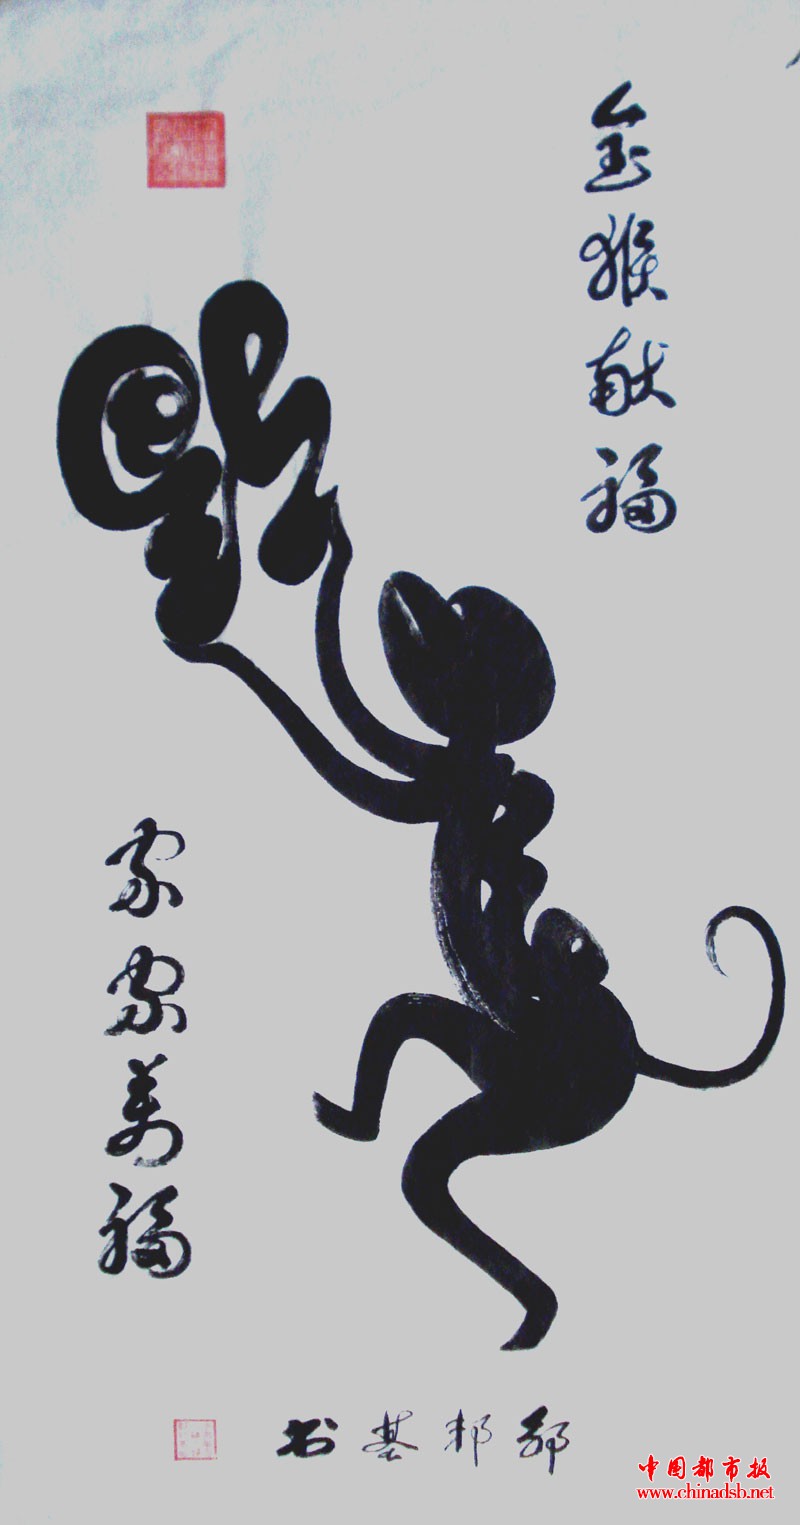 金猴献福
家家万福
邹邦基书
中国都市报
www.chinadsb.net